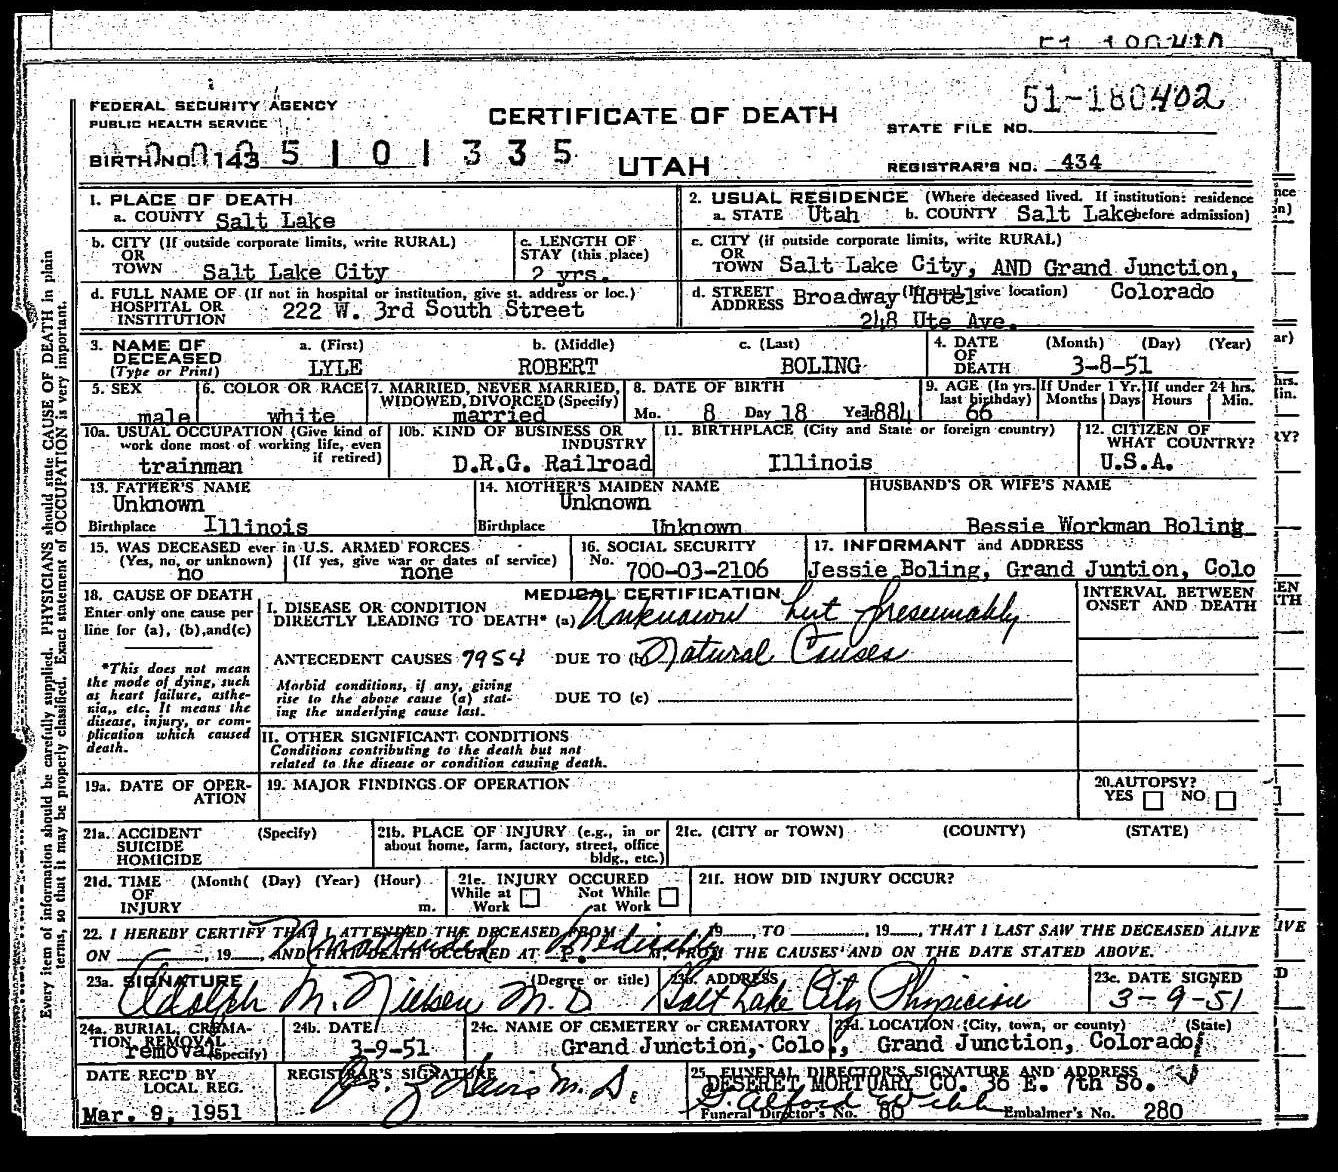 FEDERAL SECURITY AGENCY
PUBLIC HEALTH SERVICE
BIRTH NO. 143
5 1 0 1 3 3 5
CERTIFICATE OF DEATH
UTAH
51-180402
STATE FILE NO.
REGISTRAR'S NO. 434
1. PLACE OF DEATH
a. COUNTY Salt Lake
2. USUAL RESIDENCE (Where deceased lived. If institution: residence
a. STATE Utah b. COUNTY Salt Lake before admission)
b. CITY (If outside corporate limits, write RURAL)
OR
TOWN Salt Lake City
c. LENGTH OF
STAY (this place)
2 yrs.
c. CITY (if outside corporate limits, write RURAL)
OR
TOWN Salt Lake City, AND Grand Junction,
d. FULL NAME OF (If not in hospital or institution, give st. address or loc.)
HOSPITAL OR
INSTITUTION 222 W. 3rd South Street
d. STREET (If rural give location) Colorado
ADDRESS Broadway Hotel
248 Ute Ave.
3. NAME OF DECEASED
(Type or Print)
a. (First)
LYLE
b. (Middle)
ROBERT
c. (Last)
BOLING
4. DATE OF DEATH
(Month) (Day) (Year)
3-8-51
5. SEX
male
6. COLOR OR RACE
white
7. MARRIED, NEVER MARRIED,
WIDOWED, DIVORCED (Specify)
married
8. DATE OF BIRTH
Mo. 8 Day 18 Year 1884
9. AGE (In yrs.
last birthday)
66
If Under 1 Yr.
Months Days
If under 24 hrs.
Hours Min.
10a. USUAL OCCUPATION (Give kind of
work done most of working life, even
if retired)
trainman
10b. KIND OF BUSINESS OR
INDUSTRY
D.R.G. Railroad
11. BIRTHPLACE (City and State or foreign country)
Illinois
12. CITIZEN OF
WHAT COUNTRY?
U.S.A.
13. FATHER'S NAME
Unknown
Birthplace Illinois
14. MOTHER'S MAIDEN NAME
Unknown
Birthplace Unknown
HUSBAND'S OR WIFE'S NAME
Bessie Workman Boling
15. WAS DECEASED ever in U.S. ARMED FORCES
(Yes, no, or unknown) (If yes, give war or dates of service)
no none
16. SOCIAL SECURITY
No. 700-03-2106
17. INFORMANT and ADDRESS
Jessie Boling, Grand Juntion, Colo
18. CAUSE OF DEATH
Enter only one cause per
line for (a), (b), and (c)
*This does not mean
the mode of dying, such
as heart failure, asthe-
nia,, etc. It means the
disease, injury, or com-
plication which caused
death.
MEDICAL CERTIFICATION
I. DISEASE OR CONDITION
DIRECTLY LEADING TO DEATH* (a) Unknown but presumably
ANTECEDENT CAUSES 7954 DUE TO (b) Natural Causes
Morbid conditions, if any, giving
rise to the above cause (a) stat-
ing the underlying cause last.
DUE TO (c)
INTERVAL BETWEEN
ONSET AND DEATH
II. OTHER SIGNIFICANT CONDITIONS
Conditions contributing to the death but not
related to the disease or condition causing death.
19a. DATE OF OPER-
ATION
19. MAJOR FINDINGS OF OPERATION
20. AUTOPSY?
YES NO
21a. ACCIDENT (Specify)
SUICIDE
HOMICIDE
21b. PLACE OF INJURY (e.g., in or
about home, farm, factory, street, office
bldg., etc.)
21c. (CITY or TOWN) (COUNTY) (STATE)
21d. TIME (Month( (Day) (Year) (Hour)
OF
INJURY m.
21e. INJURY OCCURED
While at Work
Not While at Work
21f. HOW DID INJURY OCCUR?
22. I HEREBY CERTIFY THAT I ATTENDED THE DECEASED FROM 19 , TO , 19 , THAT I LAST SAW THE DECEASED ALIVE
Unattended Medically
ON , 19 , AND THAT DEATH OCCURED AT P. M. FROM THE CAUSES AND ON THE DATE STATED ABOVE.
23a. SIGNATURE (Degree or title)
Adolph M. Nielsen M.D
23b. ADDRESS
Salt Lake City Physician
23c. DATE SIGNED
3-9-51
24a. BURIAL, CREMA-
TION, REMOVAL
removal (Specify)
24b. DATE
3-9-51
24c. NAME OF CEMETERY or CREMATORY
Grand Junction, Colo.,
24d. LOCATION (City, town, or county) (State)
Grand Junction, Colorado
DATE REC'D BY
LOCAL REG.
Mar. 9, 1951
REGISTRAR'S SIGNATURE
M.D.
25. FUNERAL DIRECTOR'S SIGNATURE AND ADDRESS
DESERET MORTUARY CO. 36 E. 7th So.
Funeral Director's No. 80 Embalmer's No. 280
Every item of information should be carefully supplied. PHYSICIANS should state CAUSE OF DEATH in plain
terms, so that it may be properly classified. Exact statement of OCCUPATION is very important.